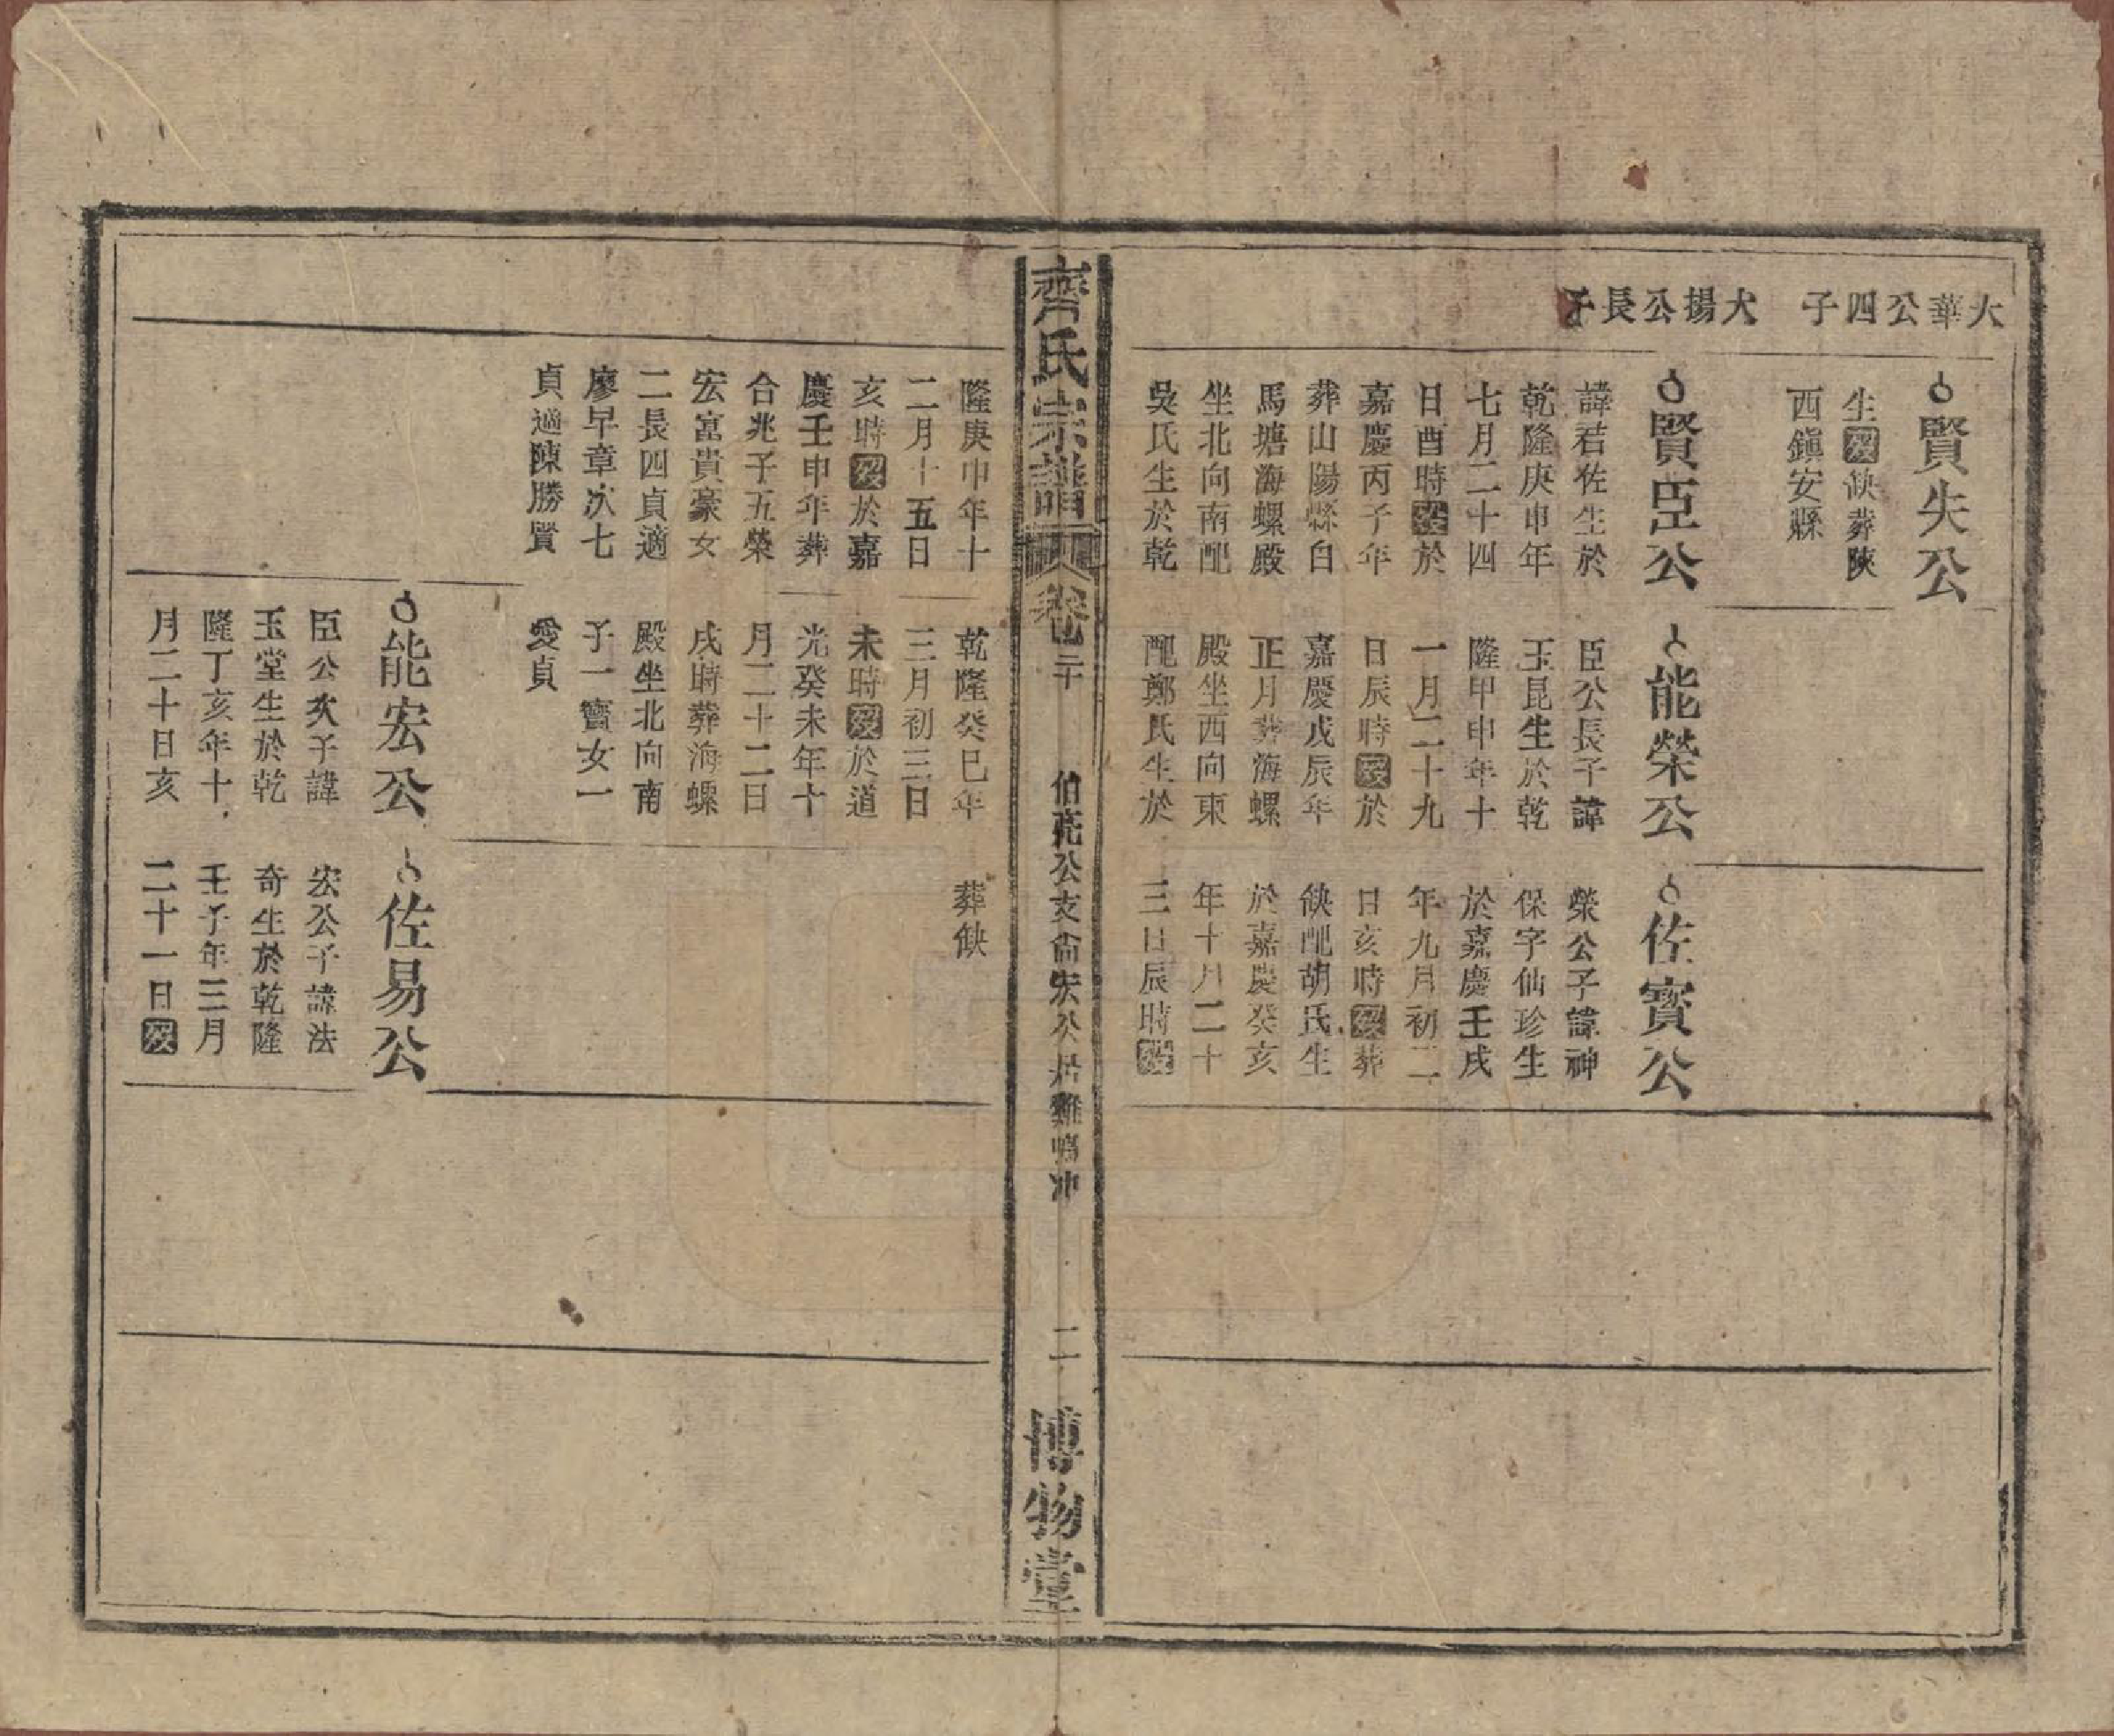 大華公四子
大揚公長子
賢失公
生歿缺葬陝
西鎮安縣
賢臣公
諱若佐生於
乾隆庚申年
七月二十四
日酉時歿於
嘉慶丙子年
葬山陽縣白
馬塘海螺殿
坐北向南配
吳氏生於乾
能榮公
臣公長子諱
玉昆生於乾
隆甲申年十
一月二十九
日辰時歿於
嘉慶戊辰年
正月葬海螺
殿坐西向東
配鄭氏生於
佐寶公
榮公子諱神
保字仙珍生
於嘉慶壬戌
年九月初二
日亥時歿葬
缺配胡氏生
於嘉慶癸亥
年十月二十
三日辰時歿
齊氏宗譜
卷二十
伯 公支尙宏公居雞鳴沖
二
博物堂
隆庚申年十
二月十五日
亥時歿於嘉
慶壬申年葬
合兆子五榮
宏富貴豪女
二長四貞適
廖早章次七
貞適陳勝賢
乾隆癸巳年
三月初三日
未時歿於道
光癸未年十
月二十二日
戌時葬海螺
殿坐北向南
子一寶女一
愛貞
葬缺
能宏公
臣公次子諱
玉堂生於乾
隆丁亥年十
月二十日亥
佐易公
宏公子諱法
奇生於乾隆
壬子年三月
二十一日歿